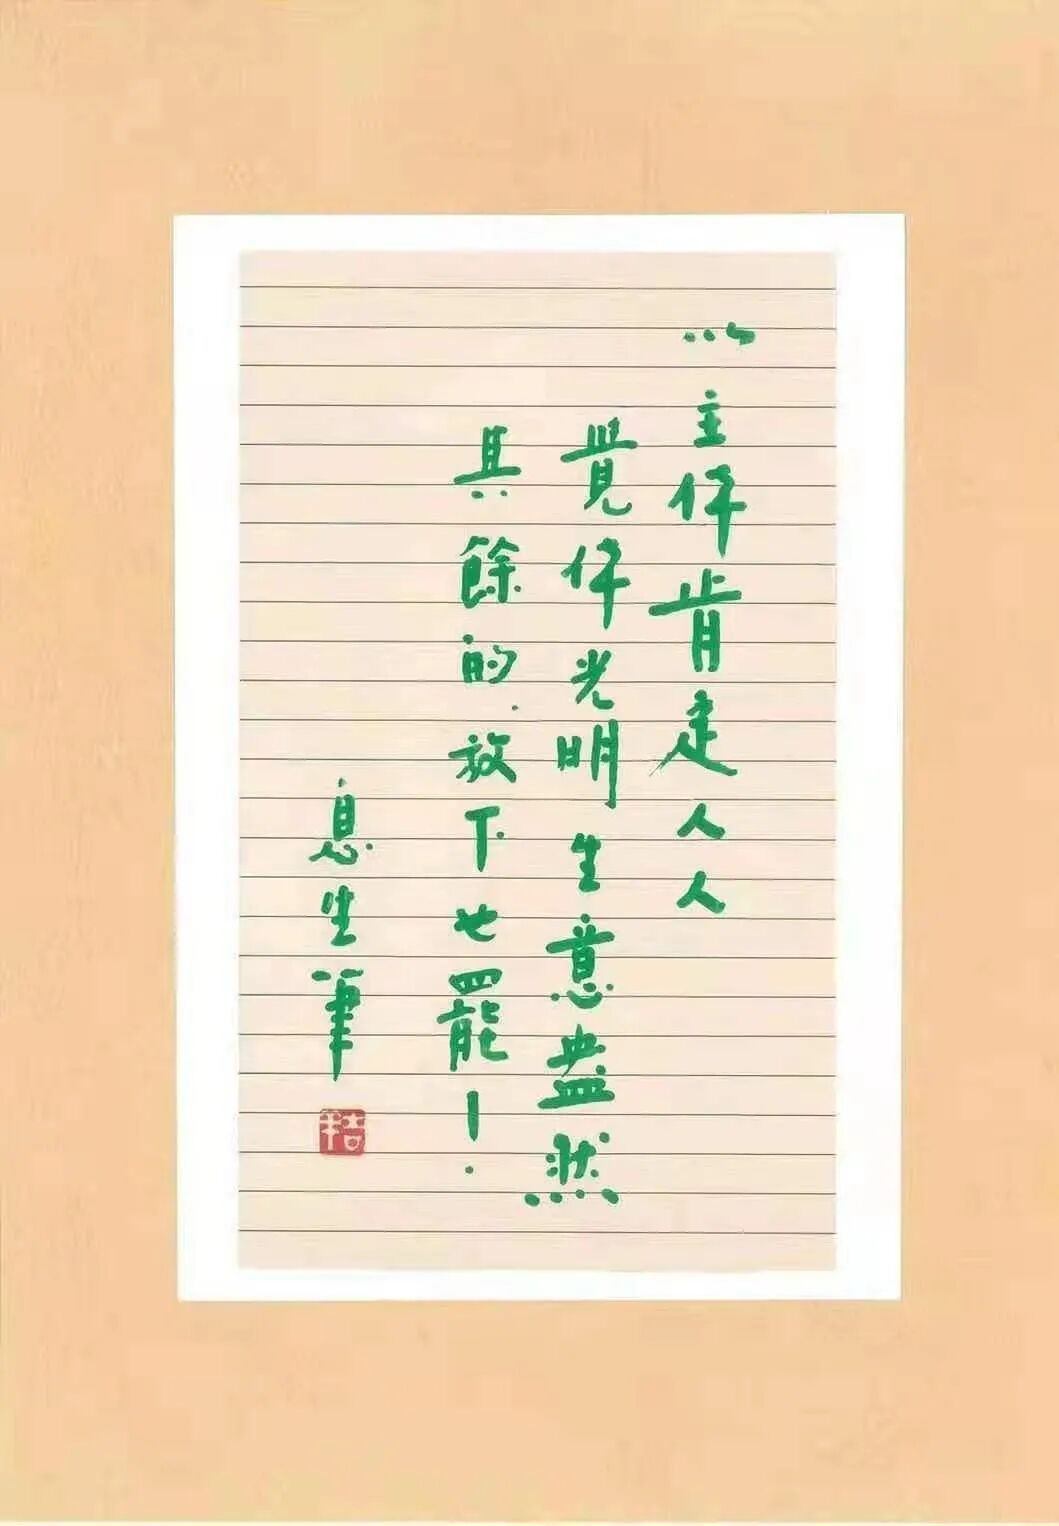 以主体肯定人人
覺体光明生意盎然
其餘的放下也罷！
息筆